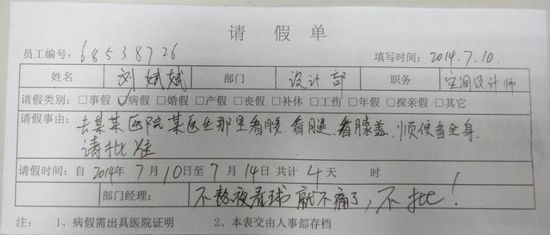 请 假 单
员工编号：68538726 填写时间：2014.7.10.
姓名 刘斌斌 部门 设计部 职务 空间设计师
请假类别：□事假 ☑病假 □婚假 □产假 □丧假 □补休 □工伤 □年假 □探亲假 □其它
请假事由：去某某医院某医生那里看腰、看腿、看膝盖，顺便看全身.
请批准
请假时间：自 2014年 7 月 10日至 7 月 14日 共计 4 天 时
部门经理：不熬夜看球就不痛了，不批！
注： 1、病假需出具医院证明 2、本表交由人事部存档